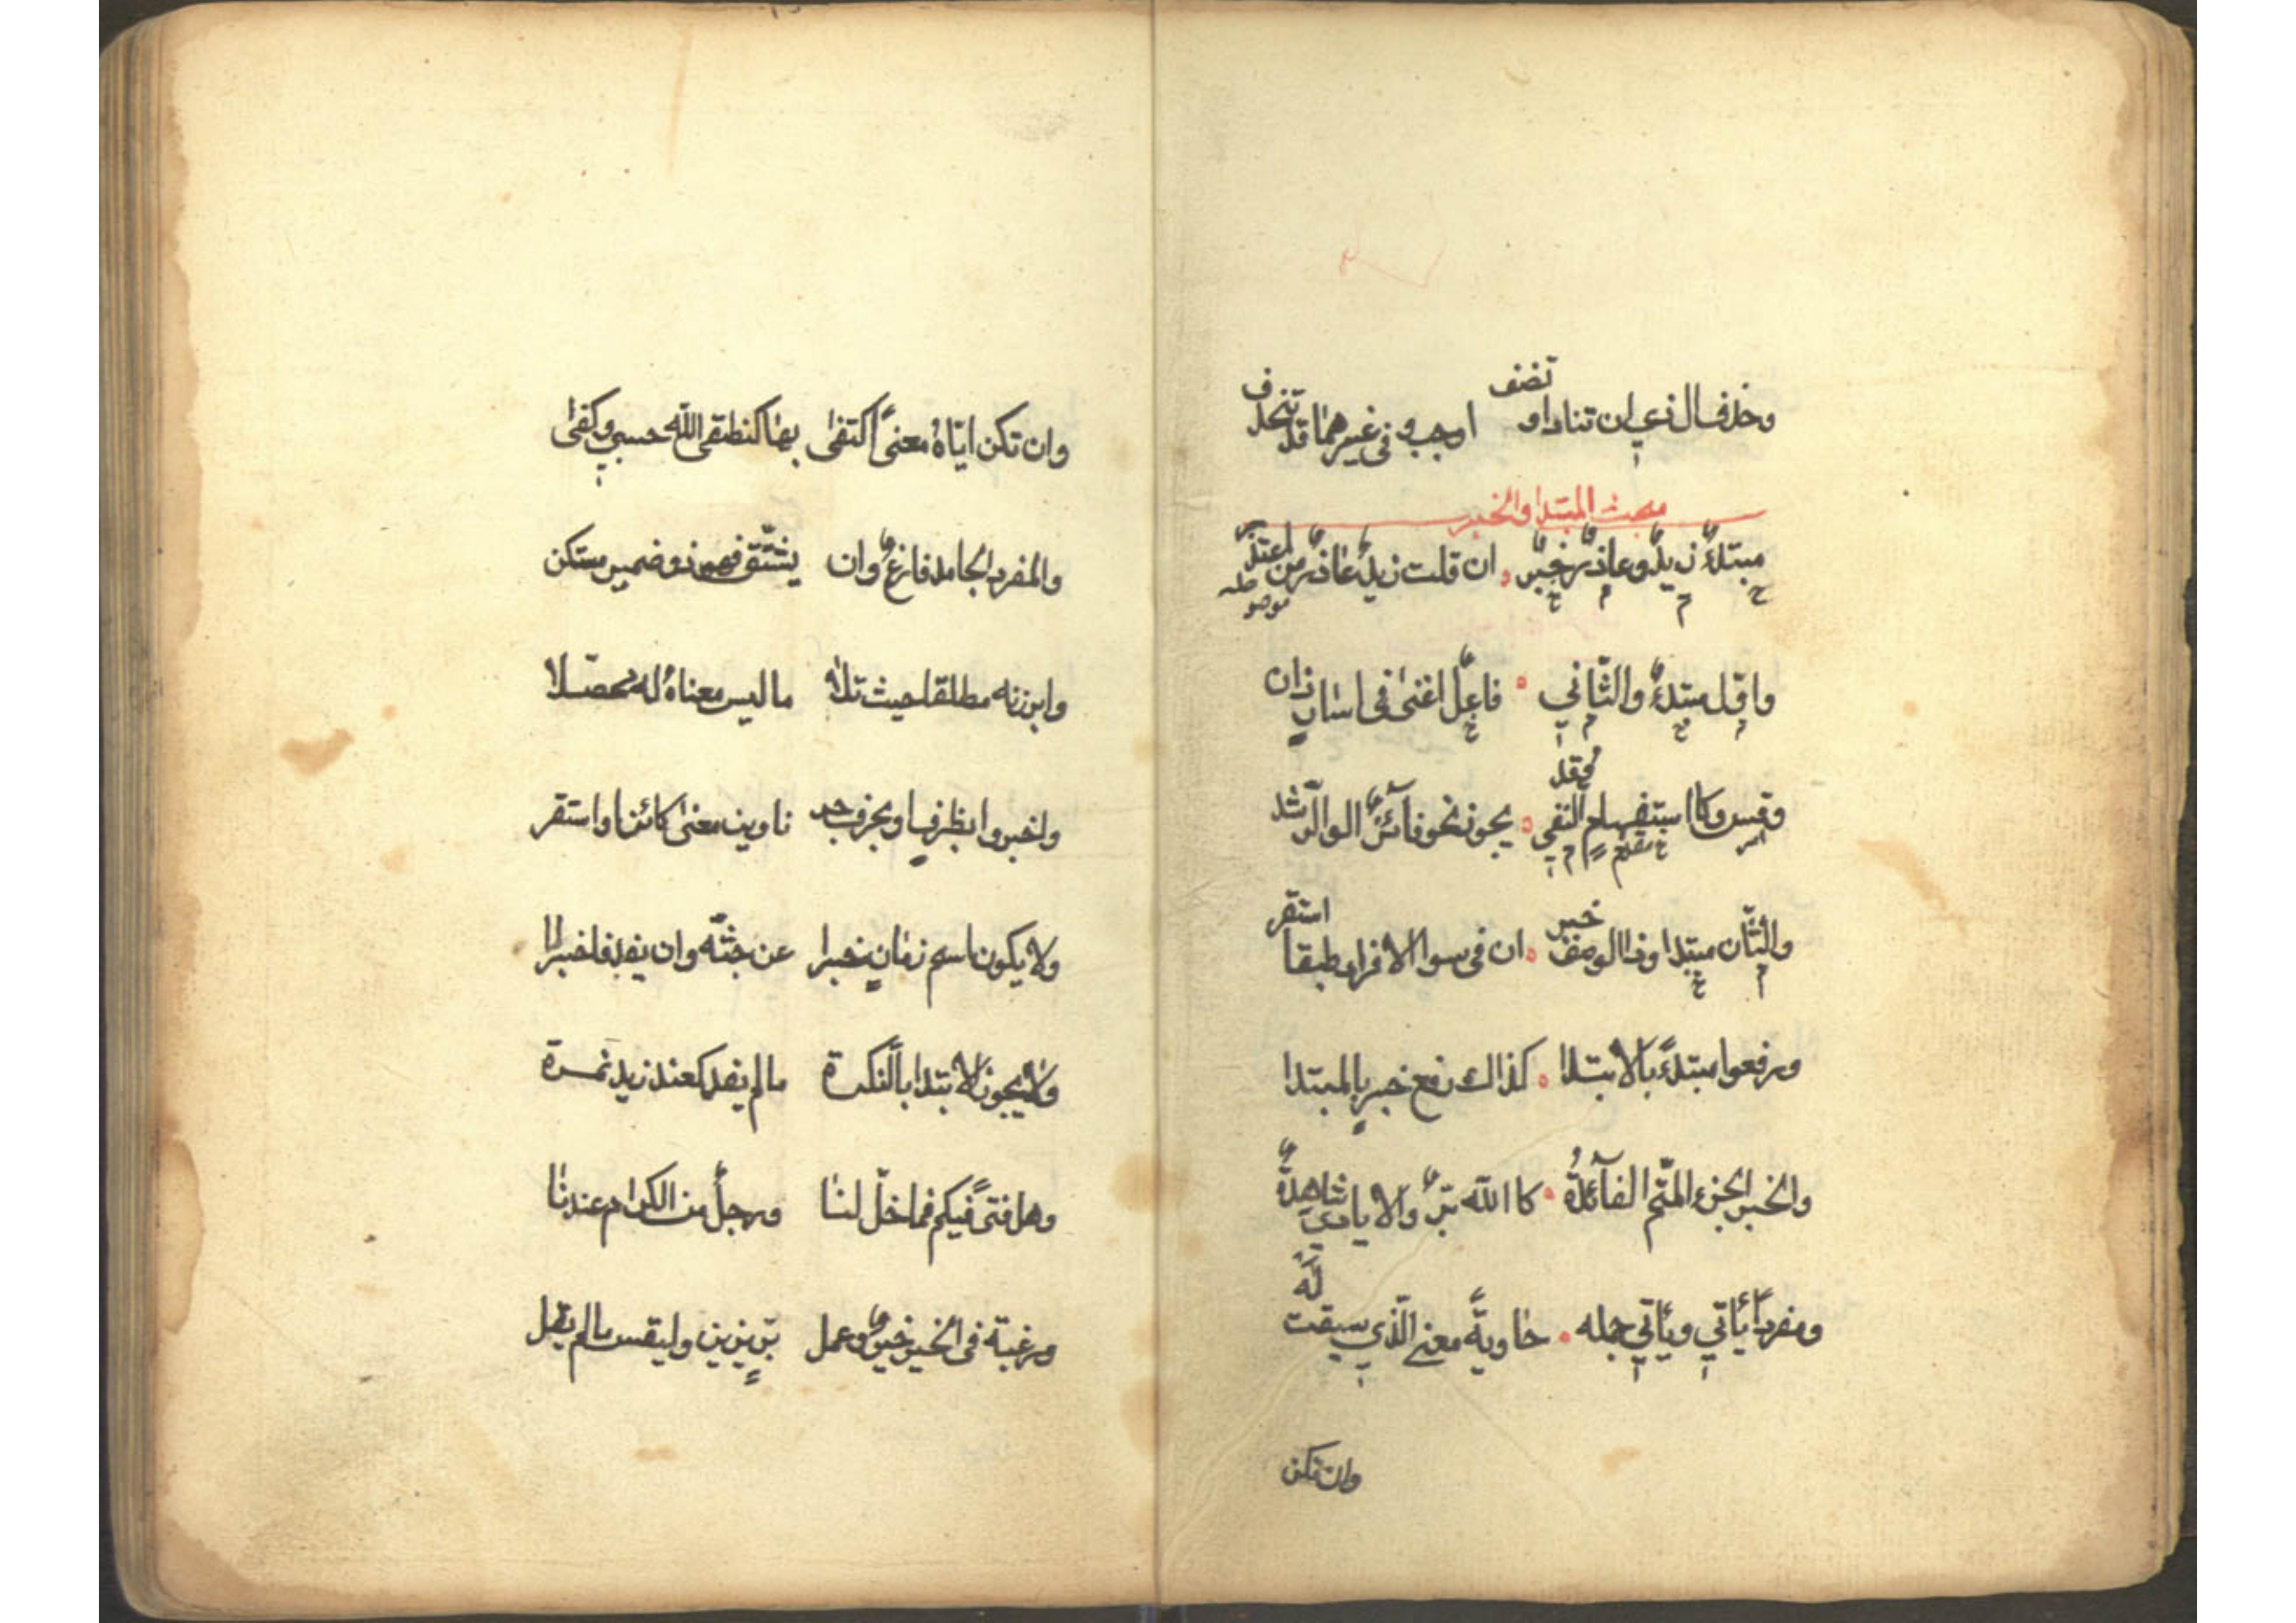 وحذف ال ذي ان تناد او تضف اوجب وفى غيرهما قد تنحذف
مبحث المبتدا والخبر
مبتدءٌ زيدٌ وعاذرٌ خبرٌ ان قلت زيدٌ عاذرٌ من اعتذر
موصوله
واول مبتدءٌ والثّاني فاعلٌ اغنى فى اسارٍ ذان
وقس وكا استفهامٍ النفي وقد يجوز نحو فآئزٌ الوا الرّشد
والثّان مبتدا وذا الوصف خبر ان فى سوا الافراد طبقا استقر
ورفعوا مبتدءً بالابتدا كذاك رفع خبرٍ بالمبتدا
والخبر الجزء المتّم الفآئدةُ كا الله برٌّ والايادي شاهدةٌ
ومفرداً يأتي ويأتي جمله حاويةً معنى الّذي سيقت له
وان تكن
وان تكن ايّاهُ معنىً اكتفى بها كنطقى الله حسبي وكفى
والمفرد الجامد فارغٌ وان يشتّق فهو ذو ضمير مستكن
وابرزنه مطلقا حيث تلا ما ليس معناهُ له محصّلا
واخبروا بظرفٍ او بحرف جر ناوين معنى كائن او استقر
ولا يكون اسم زمانٍ خبرا عن جثّه وان يفد فاخبرا
ولا يجوز الابتدا بالنّكرة ما لم يفد كعند زيد نمرة
وهل فتىً فيكم فما خلّ لنا ورجلٌ من الكرام عندنا
ورغبة فى الخير خيرٌ وعمل برٍّ يزين وليقس مالم يقل